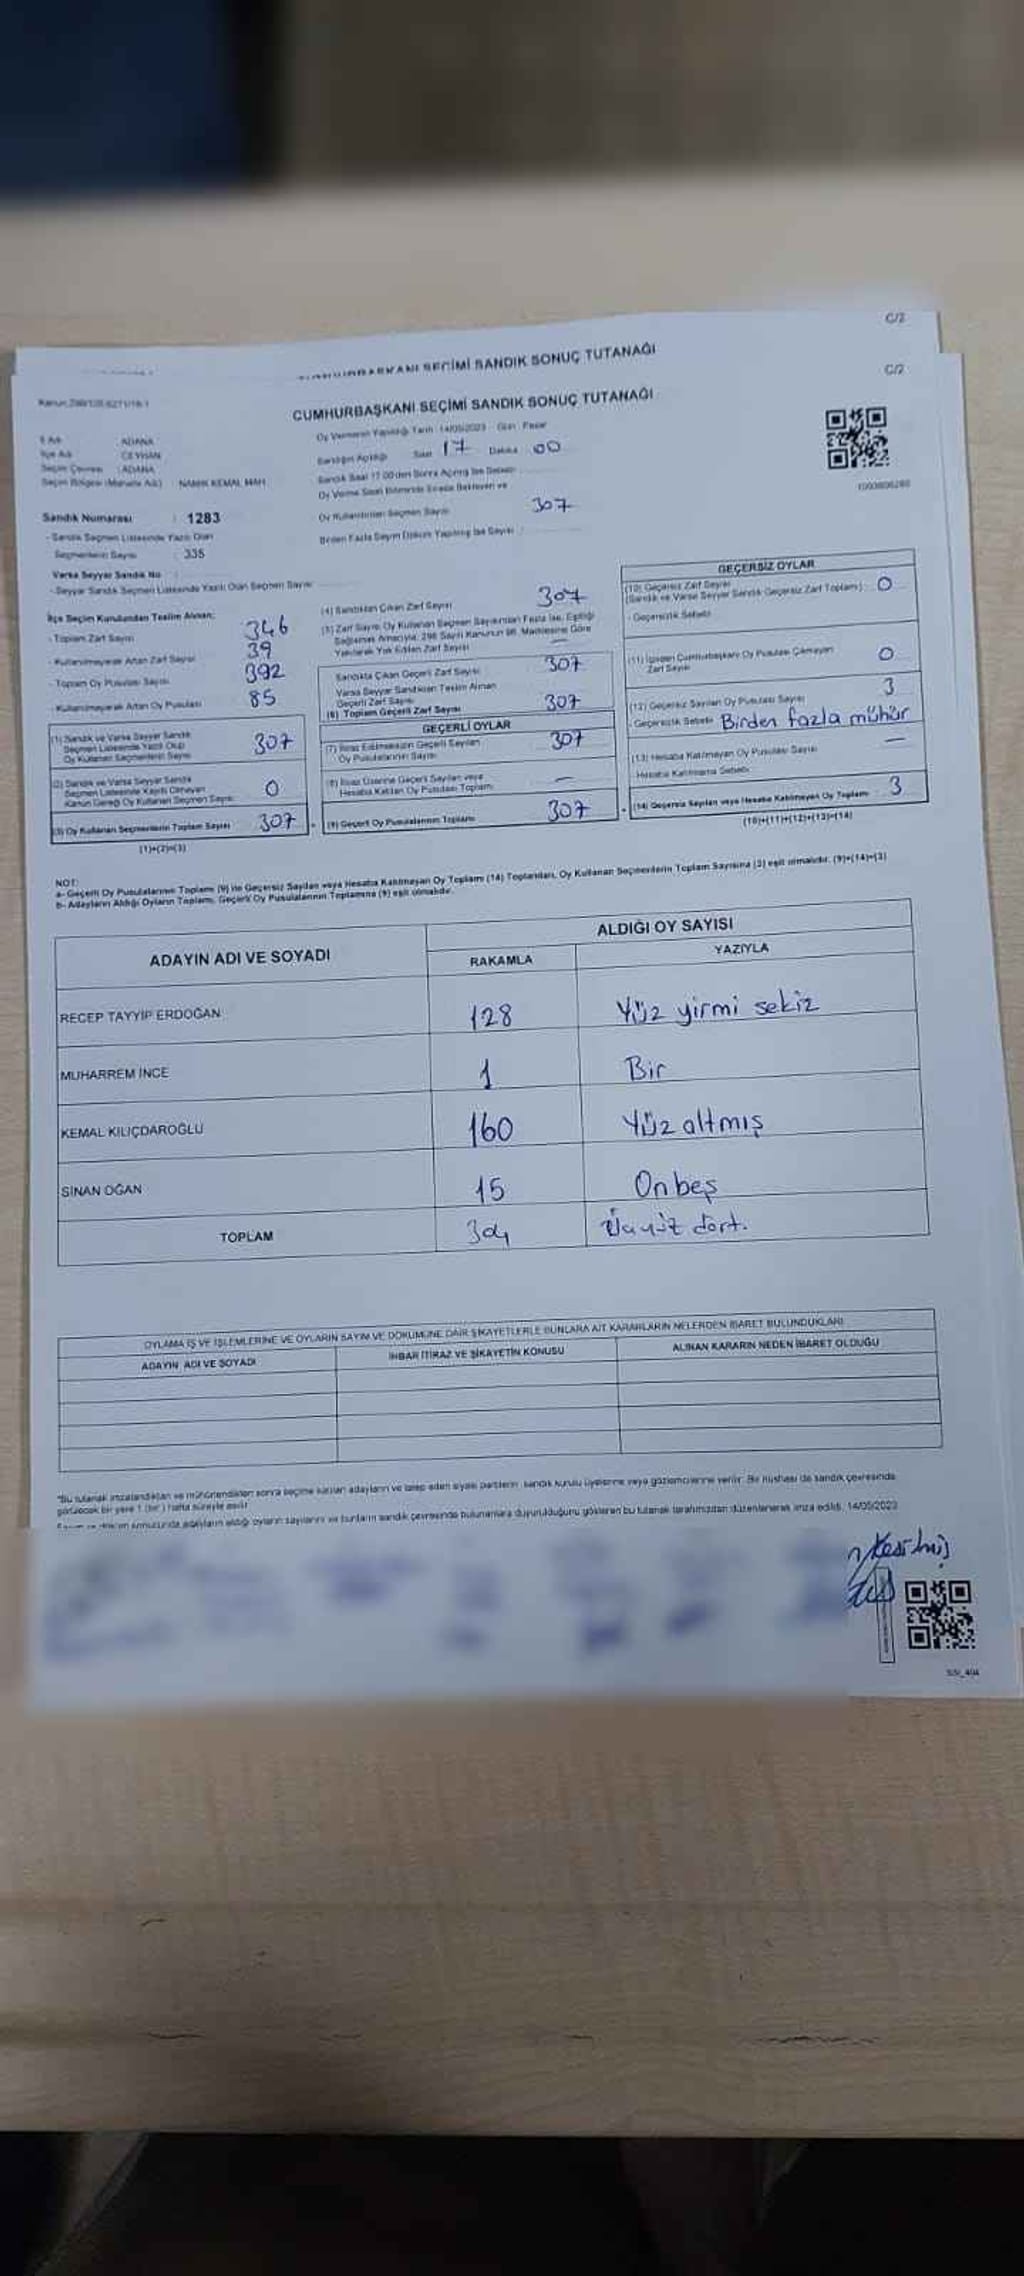 C/2
CUMHURBAŞKANI SEÇİMİ SANDIK SONUÇ TUTANAĞI
C/2
CUMHURBAŞKANI SEÇİMİ SANDIK SONUÇ TUTANAĞI
Oy Vermenin Yapıldığı Tarih 14/05/2023 Gün Pazar
Sandığın Açıldığı Saat 17 Dakika 00
Sandık Saat 17.00'den Sonra Açılmış İse Sebebi
Oy Verme Saati Bitiminde Sırada Bekleyen ve
Oy Kullandırılan Seçmen Sayısı 307
Birden Fazla Sayım Döküm Yapılmış İse Sayısı
İl Adı : ADANA
İlçe Adı : CEYHAN
Seçim Çevresi : ADANA
Seçim Bölgesi (Mahalle Adı) : NAMIK KEMAL MAH.
Sandık Numarası : 1283
- Sandık Seçmen Listesinde Yazılı Olan
Seçmenlerin Sayısı : 335
Varsa Seyyar Sandık No
- Seyyar Sandık Seçmen Listesinde Yazılı Olan Seçmen Sayısı
İlçe Seçim Kurulundan Teslim Alınan;
- Toplam Zarf Sayısı 346
- Kullanılmayarak Artan Zarf Sayısı 39
- Toplam Oy Pusulası Sayısı 392
- Kullanılmayarak Artan Oy Pusulası 85
(1) Sandık ve Varsa Seyyar Sandık
Seçmen Listesinde Yazılı Olup
Oy Kullanan Seçmenlerin Sayısı 307
(2) Sandık ve Varsa Seyyar Sandık
Seçmen Listesinde Kayıtlı Olmayan
Kanun Gereği Oy Kullanan Seçmen Sayısı 0
(3) Oy Kullanan Seçmenlerin Toplam Sayısı 307
(1)+(2)=(3)
(4) Sandıktan Çıkan Zarf Sayısı 307
(5) Zarf Sayısı Oy Kullanan Seçmen Sayısından Fazla İse, Eşitliği
Sağlamak Amacıyla, 298 Sayılı Kanunun 98. Maddesine Göre
Yakılarak Yok Edilen Zarf Sayısı —
Sandıkta Çıkan Geçerli Zarf Sayısı 307
Varsa Seyyar Sandıktan Teslim Alınan
Geçerli Zarf Sayısı
(6) Toplam Geçerli Zarf Sayısı 307
GEÇERLİ OYLAR
(7) İtiraz Edilmeksizin Geçerli Sayılan
Oy Pusulalarının Sayısı 307
(8) İtiraz Üzerine Geçerli Sayılan veya
Hesaba Katılan Oy Pusulası Toplamı —
(9) Geçerli Oy Pusulalarının Toplamı 307
GEÇERSİZ OYLAR
(10) Geçersiz Zarf Sayısı
(Sandık ve Varsa Seyyar Sandık Geçersiz Zarf Toplamı) 0
- Geçersizlik Sebebi
(11) İçinden Cumhurbaşkanı Oy Pusulası Çıkmayan
Zarf Sayısı 0
(12) Geçersiz Sayılan Oy Pusulası Sayısı 3
- Geçersizlik Sebebi Birden fazla mühür
(13) Hesaba Katılmayan Oy Pusulası Sayısı —
Hesaba Katılmama Sebebi
(14) Geçersiz Sayılan veya Hesaba Katılmayan Oy Toplamı 3
(10)+(11)+(12)+(13)=(14)
NOT:
a- Geçerli Oy Pusulalarının Toplamı (9) ile Geçersiz Sayılan veya Hesaba Katılmayan Oy Toplamı (14) Toplamları, Oy Kullanan Seçmenlerin Toplam Sayısına (3) eşit olmalıdır. (9)+(14)=(3)
b- Adayların Aldığı Oyların Toplamı, Geçerli Oy Pusulalarının Toplamına (9) eşit olmalıdır.
ADAYIN ADI VE SOYADI ALDIĞI OY SAYISI
RAKAMLA YAZIYLA
RECEP TAYYİP ERDOĞAN 128 Yüz yirmi sekiz
MUHARREM İNCE 1 Bir
KEMAL KILIÇDAROĞLU 160 Yüz altmış
SİNAN OĞAN 15 On beş
TOPLAM 304 Üçyüz dört.
OYLAMA İŞ VE İŞLEMLERİNE VE OYLARIN SAYIM VE DÖKÜMÜNE DAİR ŞİKAYETLERLE BUNLARA AİT KARARLARIN NELERDEN İBARET BULUNDUKLARI
ADAYIN ADI VE SOYADI İHBAR İTİRAZ VE ŞİKAYETİN KONUSU ALINAN KARARIN NEDEN İBARET OLDUĞU
*Bu tutanak imzalandıktan ve mühürlendikten sonra seçime katılan adayların ve talep eden siyasi partilerin sandık kurulu üyelerine veya gözlemcilerine verilir. Bir nüshası da sandık çevresinde
görülecek bir yere 1 (bir) hafta süreyle asılır.
Sayım ve döküm sonucunda adayların aldığı oyların sayılarını ve bunların sandık çevresinde bulunanlara duyurulduğunu gösteren bu tutanak tarafımızdan düzenlenerek imza edildi. 14/05/2023